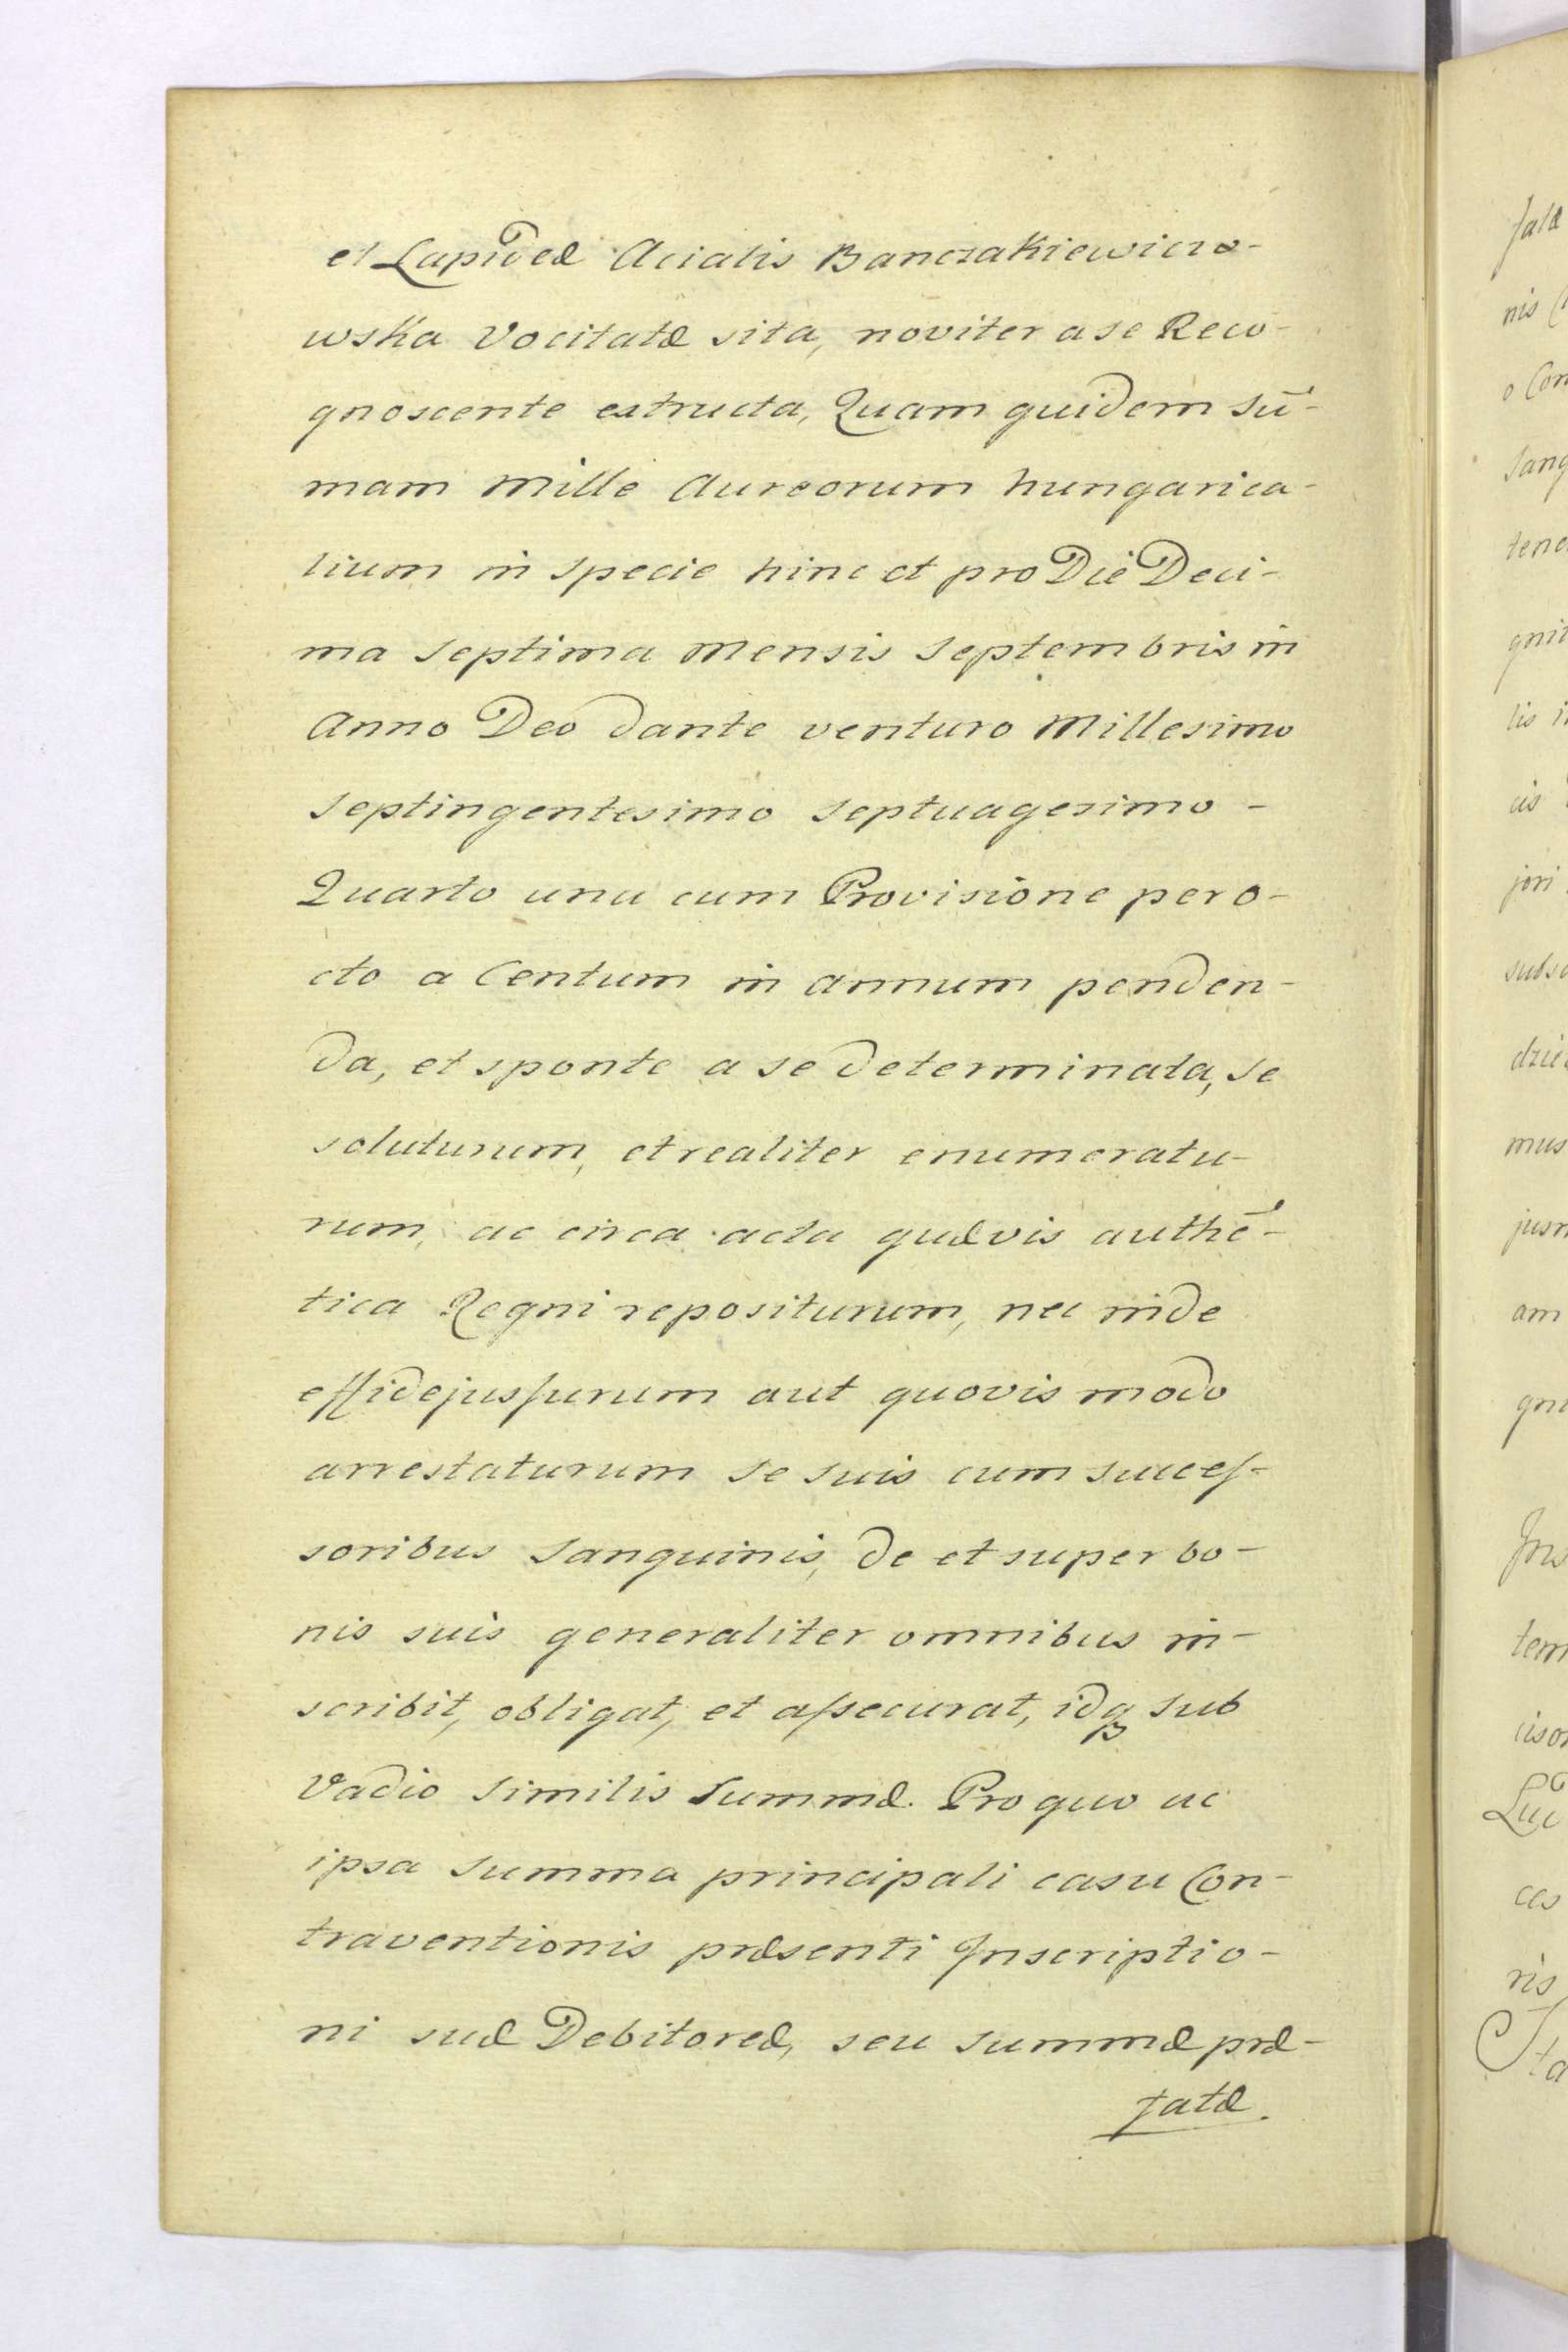 et Lapideæ Acialis Banczakiewiczo-
wska Vocitatæ sita, noviter a se Reco-
gnoscente extructa, Quam quidem sum̄-
mam Mille Aureorum hungarica-
lium in specie hinc et pro Die Deci-
ma Septima Mensis Septembris in
Anno Deo dante venturo Millesimo
Septingentesimo Septuagesimo -
Quarto una cum Provisione per o-
cto a Centum in annum penden-
da, et sponte a se determinata, se
soluturum, et realiter enumeratu-
rum, ac circa acta quævis authē-
tica Regni repositurum, nec inde
effidejussurum aut quovis modo
arrestaturum se suis cum succes-
soribus Sanguinis, de et super bo-
nis suis generaliter omnibus in-
scribit, obligat, et assecurat, idq sub
Vadio Similis Summæ. Pro quo ac
ipsa Summa principali casu Con-
traventionis præsenti Inscriptio-
ni suæ Debitoreæ, seu summæ præ-
fatæ.
fatæ
nis
o Con
sang
tene
gnit
lis i
cis
jori
subsc
dzie
mus
jusm
am
gni
Ins
tem
cisor
Luc
ces
ris
Sta